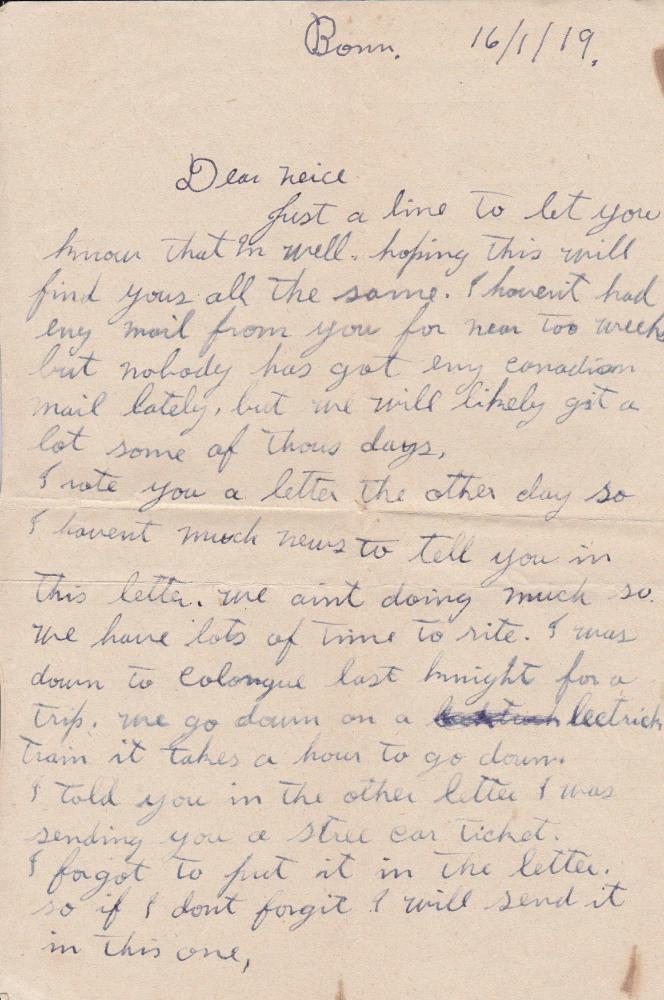 Bonn. 16/1/19.
Dear neice
Just a line to let you
know that Im well. hoping this will
find yous all the same. I havent had
eny mail from you for near too weeks
but nobody has got eny canadian
mail lately, but we will likely git a
lot some of thous days,
I rote you a letter the other day so
I havent much news to tell you in
this letter. we aint doing much so.
we have lots of time to rite. I was
down to Colongue last knight for a
trip. we go down on a lectrick
train it takes a hour to go down.
I told you in the other letter I was
sending you a stree car ticket.
I forgot to put it in the letter.
so if I dont forgit I will send it
in this one,